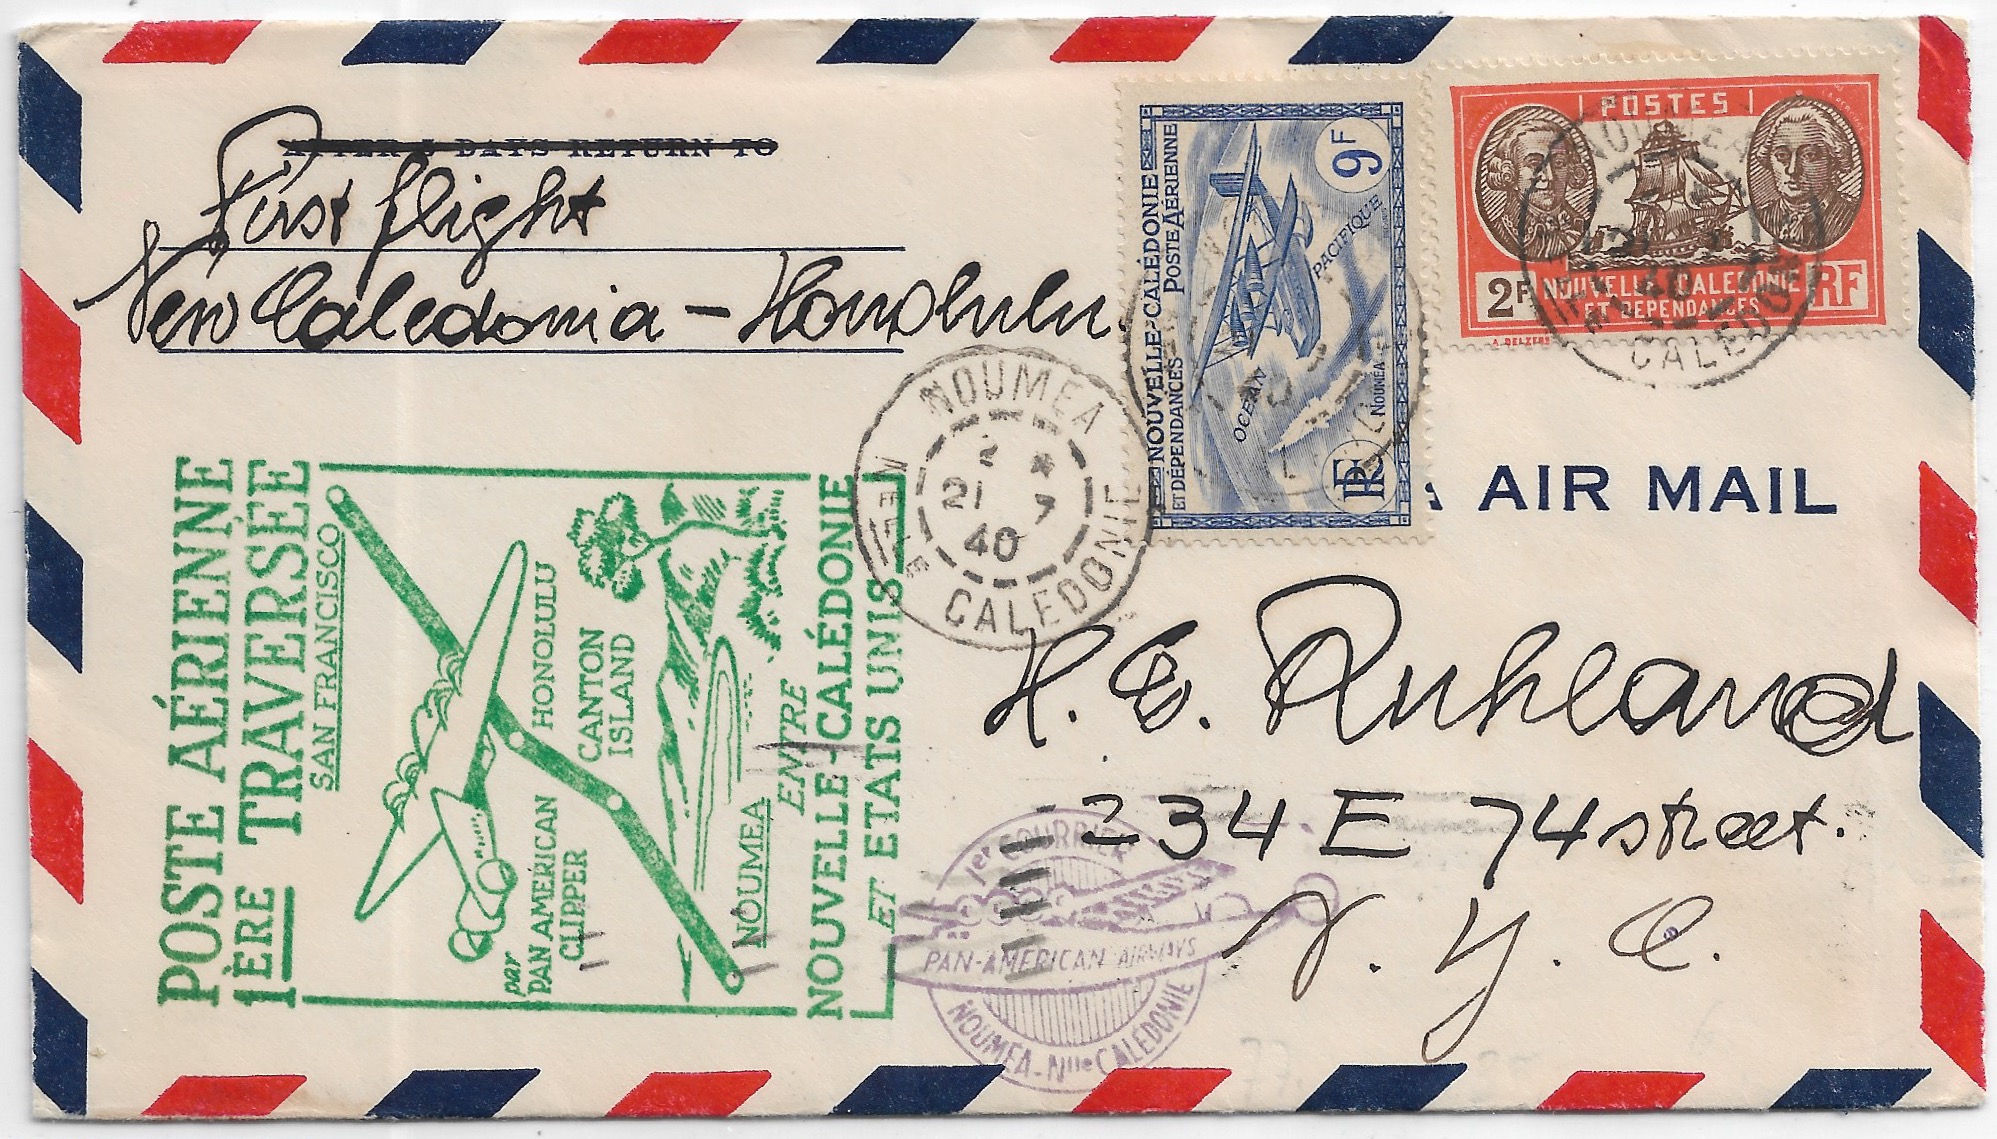 AFTER 5 DAYS RETURN TO
First flight
New Caledonia - Honolulu.
POSTES
2F NOUVELLE CALEDONIE RF
ET DEPENDANCES
A. DELZERS
NOUVELLE-CALÉDONIE
ET DÉPENDANCES
POSTE AÉRIENNE
9F
OCEAN PACIFIQUE
NOUMEA
RF
NOUMEA
2 *
21 7
40
NELLE CALEDONIE
NOUMEA
CALEDO
AIR MAIL
POSTE AÉRIENNE
1ÈRE TRAVERSÉE
SAN FRANCISCO
HONOLULU
CANTON
ISLAND
NOUMEA
par
PAN AMÉRICAN
CLIPPER
ENTRE
NOUVELLE-CALÉDONIE
ET ETATS UNIS
H. E. Ruhland
234 E 74 street.
N. Y. C.
1er COURRIER
PAN-AMERICAN AIRWAYS
NOUMÉA - Nlle CALEDONIE